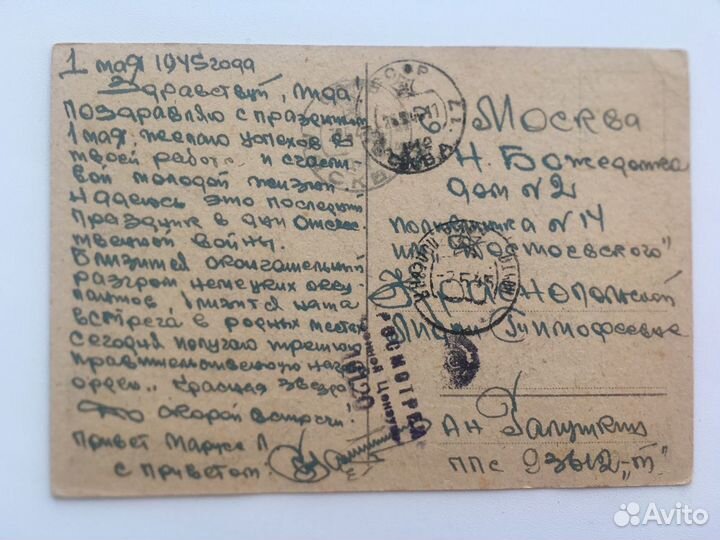 1 мая 1945 года
Здравствуй, Лида
поздравляю с праздником
1 мая желаю успехов в
твоей работе и счастли
вой молодой жизни
Надеюсь это последний
праздник в дни Отечес
твенной войны.
Близится окончательный
разгром немецких окку
пантов близится наша
встреча в родных местах
сегодня получаю третью
правительственную награду
орден "Красная Звезда"
До скорой встречи!
Привет Маруся Л
с приветом
Москва
Н. Божедомка
дом N 2
поликлиника N 14
им "Достоевского"
Лидии Тимофеевне
АН Галушкин
ППС 23612 "Т"
СССР
МОСКВА 17
ПРОСМОТРЕНО
Военной Цензурой
Avito